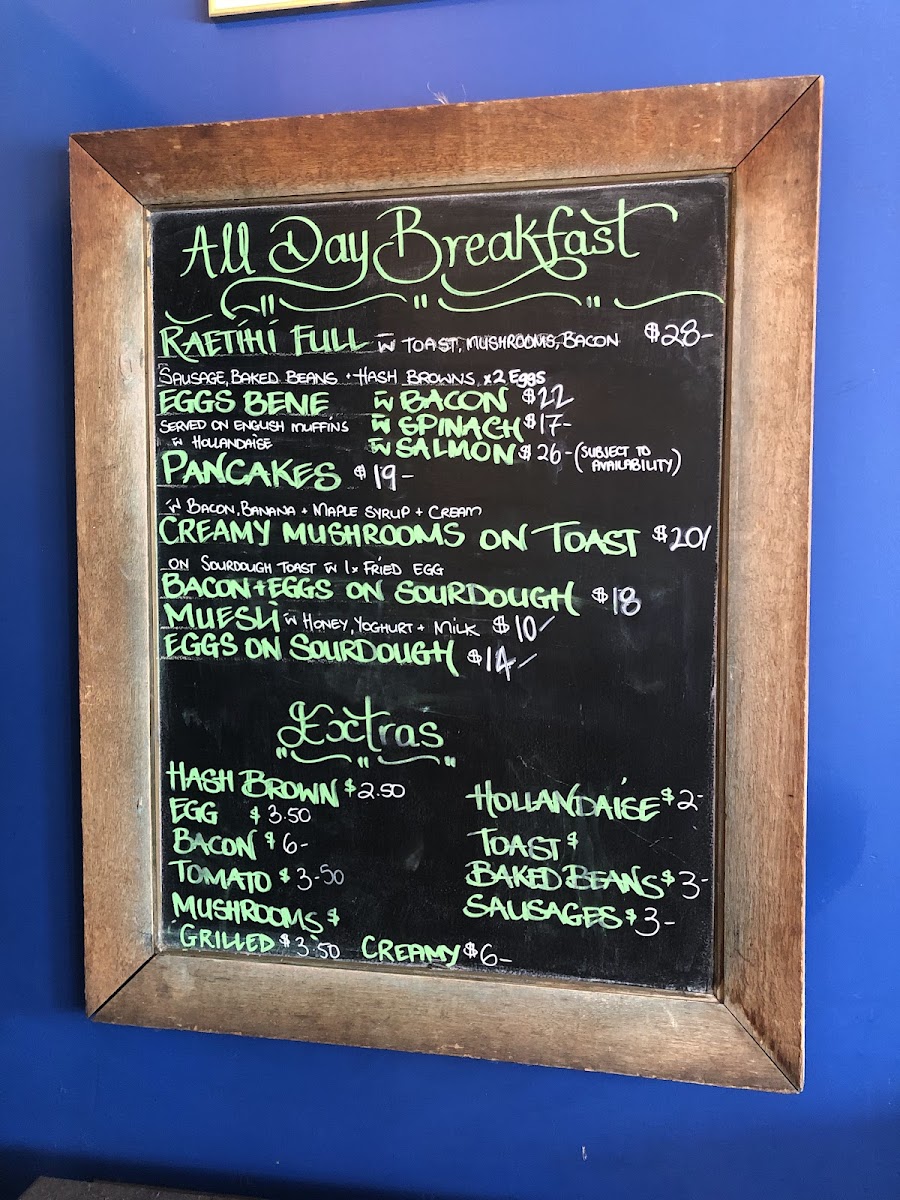 All Day Breakfast
RAETIHI FULL w TOAST, MUSHROOMS, BACON $28-
SAUSAGE, BAKED BEANS + HASH BROWNS, x2 Eggs
EGGS BENE w BACON $22
SERVED ON ENGLISH MUFFINS w SPINACH $17-
w HOLLANDAISE w SALMON $26- (SUBJECT TO AVAILABILITY)
PANCAKES $19-
w BACON, BANANA + MAPLE SYRUP + CREAM
CREAMY MUSHROOMS ON TOAST $20/
ON SOURDOUGH TOAST w 1x FRIED EGG
BACON+EGGS ON SOURDOUGH $18
MUESLI w HONEY, YOGHURT + MILK $10-
EGGS ON SOURDOUGH $14-
Extras
HASH BROWN $2.50
EGG $3.50
BACON $6-
TOMATO $3-50
MUSHROOMS $
GRILLED $3.50 CREAMY $6-
HOLLANDAISE $2-
TOAST $
BAKED BEANS $3-
SAUSAGES $3-